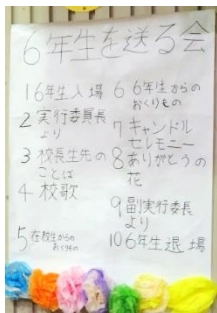 6年生を送る会
1 6年生入場
2 実行委員長
より
3 校長先生の
ことば
4 校歌
5 在校生からの
おくりもの
6 6年生からの
おくりもの
7 キャンドル
セレモニー
8 ありがとうの
花
9 副実行委長
より
10 6年生退場